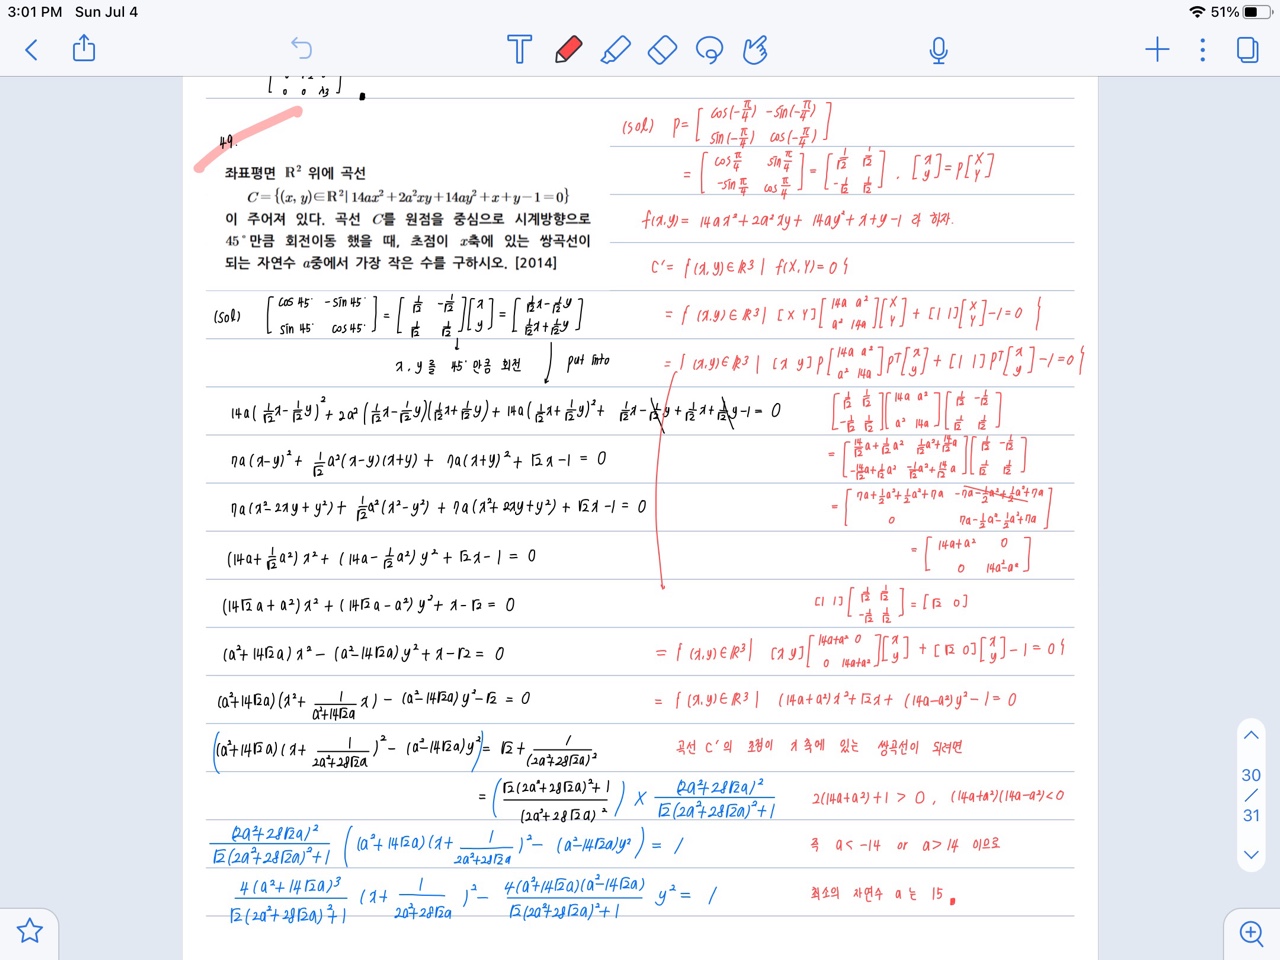 3:01 PM Sun Jul 4
51%
0 0 λ₃
49.
좌표평면 R² 위에 곡선
C={(x, y)∈R²| 14ax²+2a²xy+14ay²+x+y−1=0}
이 주어져 있다. 곡선 C를 원점을 중심으로 시계방향으로
45°만큼 회전이동 했을 때, 초점이 x축에 있는 쌍곡선이
되는 자연수 a중에서 가장 작은 수를 구하시오. [2014]
(sol) [cos45° −sin45° / sin45° cos45°] = [1/√2 −1/√2 / 1/√2 1/√2][x / y] = [1/√2x−1/√2y / 1/√2x+1/√2y]
x, y를 45° 만큼 회전
put into
14a(1/√2x−1/√2y)²+2a²(1/√2x−1/√2y)(1/√2x+1/√2y)+14a(1/√2x+1/√2y)²+ 1/√2x−1/√2y+1/√2x+1/√2y−1 = 0
7a(x−y)²+ 1/√2a²(x−y)(x+y) + 7a(x+y)²+√2x−1 = 0
7a(x²−2xy+y²)+ 1/√2a²(x²−y²) + 7a(x²+2xy+y²)+√2x−1 = 0
(14a+1/√2a²)x²+ (14a−1/√2a²)y²+√2x−1 = 0
(14√2a+a²)x²+(14√2a−a²)y²+x−√2 = 0
(a²+14√2a)x²−(a²−14√2a)y²+x−√2 = 0
(a²+14√2a)(x²+ 1/(a²+14√2a) x) − (a²−14√2a)y²−√2 = 0
((a²+14√2a)(x+ 1/(2a²+28√2a))²− (a²−14√2a)y²)= √2+ 1/(2a²+28√2a)²
= (√2(2a²+28√2a)²+1 / (2a²+28√2a)²) × (2a²+28√2a)² / √2(2a²+28√2a)²+1
(2a²+28√2a)² / √2(2a²+28√2a)²+1 ((a²+14√2a)(x+ 1/(2a²+28√2a))²− (a²−14√2a)y²) = 1
4(a²+14√2a)³ / √2(2a²+28√2a)²+1 (x+ 1/(2a²+28√2a))²− 4(a²+14√2a)(a²−14√2a) / √2(2a²+28√2a)²+1 y² = 1
(sol) P= [cos(−π/4) −sin(−π/4) / sin(−π/4) cos(−π/4)]
= [cosπ/4 sinπ/4 / −sinπ/4 cosπ/4] = [1/√2 1/√2 / −1/√2 1/√2] . [x / y]=P[X / Y]
f(x,y)= 14ax²+2a²xy+14ay²+x+y−1 라 하자.
C'= {(x,y)∈R³| f(X,Y)=0}
= {(x,y)∈R³| [X Y][14a a² / a² 14a][X / Y] + [1 1][X / Y]−1=0 }
= {(x,y)∈R³| [x y]P[14a a² / a² 14a]Pᵀ[x / y] + [1 1]Pᵀ[x / y]−1=0}
[1/√2 1/√2 / −1/√2 1/√2][14a a² / a² 14a][1/√2 −1/√2 / 1/√2 1/√2]
= [14/√2a+1/√2a² 1/√2a²+14/√2a / −14/√2a+1/√2a² −1/√2a²+14/√2a][1/√2 −1/√2 / 1/√2 1/√2]
= [7a+½a²+½a²+7a −7a−½a²+½a²+7a / 0 7a−½a²−½a²+7a]
= [14a+a² 0 / 0 14a²−a²]
[1 1][1/√2 1/√2 / −1/√2 1/√2]=[√2 0]
= {(x,y)∈R³| [x y][14a+a² 0 / 0 14a+a²][x / y] + [√2 0][x / y]−1=0}
= {(x,y)∈R³| (14a+a²)x²+√2x+ (14a−a²)y²−1=0
곡선 C'의 초점이 x축에 있는 쌍곡선이 되려면
2(14a+a²)+1 > 0 , (14a+a²)(14a−a²)<0
즉 a<−14 or a>14 이므로
최소의 자연수 a는 15.
30
/
31